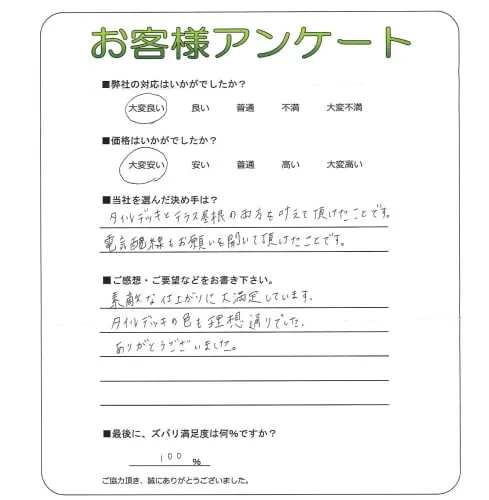 お客様アンケート
■弊社の対応はいかがでしたか？
大変良い 良い 普通 不満 大変不満
■価格はいかがでしたか？
大変安い 安い 普通 高い 大変高い
■当社を選んだ決め手は？
タイルデッキとテラス屋根の両方を叶えて頂けたことです。
電気配線もお願いを聞いて頂けたことです。
■ご感想・ご要望などをお書き下さい。
素敵な仕上がりに大満足しています。
タイルデッキの色も理想通りでした。
ありがとうございました。
■最後に、ズバリ満足度は何％ですか？
100 ％
ご協力頂き、誠にありがとうございました。